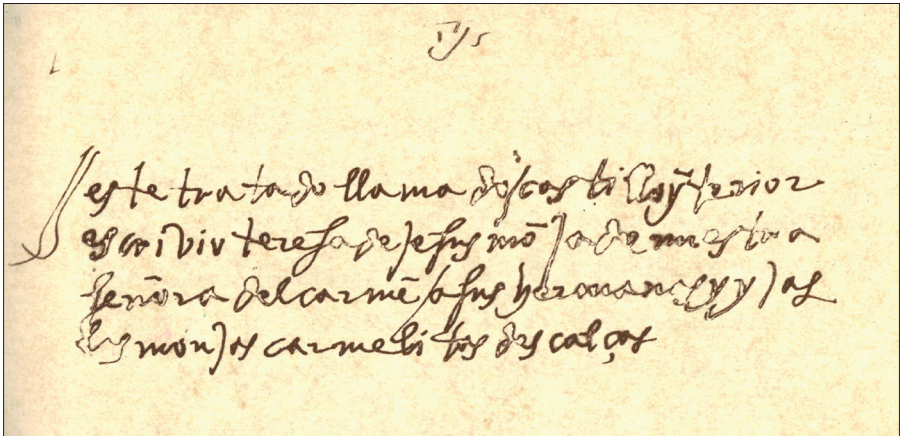 Jhs
este tratado llamado castillo ynterior
escrivio teresa de jesus mōja de nuestra
señora del carmē a sus hermanas y yjas
las monjas carmelitas descalças